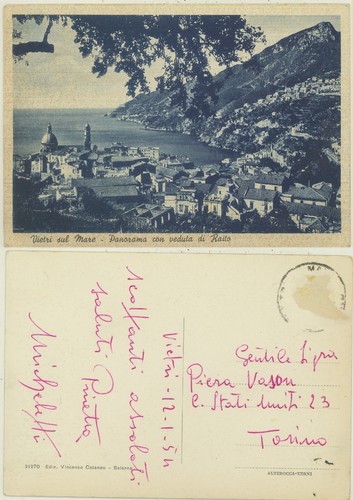 Vietri sul Mare - Panorama con veduta di Raito
Vietri - 12-1-54
scottanti assolati
saluti Pinetta
Micheletti
Gentile Sig.ra
Piera Vason
C. Stati Uniti 23
Torino
24270 Ediz. Vincenzo Carrano - Salerno
ALTEROCCA-TERNI